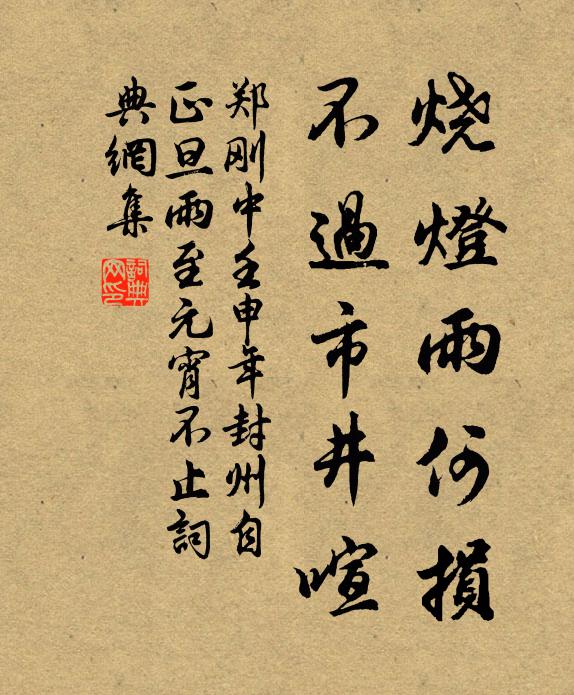 烧燈雨何損
不過市井喧
郑刚中壬申年封州自
正旦雨至元宵不止詞
典網集
詞典网印